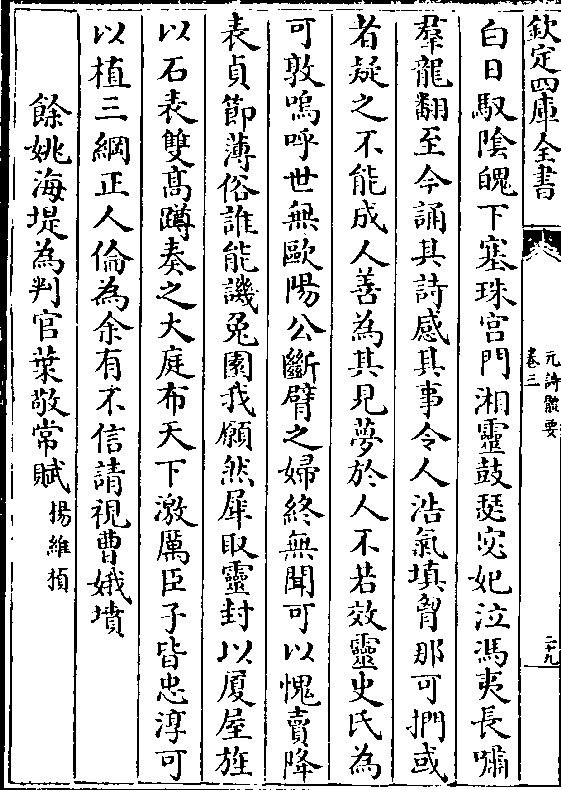 欽定四庫全書
元詩體要
卷三
二十九
白日馭陰魄下塞珠宫門湘靈鼓瑟宓妃泣馮夷長嘯
羣龍翻至今誦其詩感其事令人浩氣填胷那可捫或
者疑之不能成人善為其見夢於人不若效靈史氏為
可敦嗚呼世無歐陽公斷臂之婦終無聞可以愧賣降
表貞節薄俗誰能譏兔園我願然犀取靈封以厦屋旌
以石表雙髙蹲奏之大庭布天下激厲臣子皆忠淳可
以植三綱正人倫為余有不信請視曹娥墳
餘姚海堤為判官葉敬常賦
揚維楨